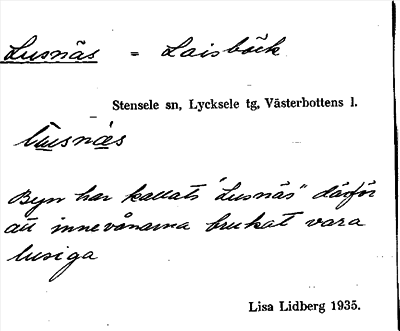 Lusnäs = Laisbäck
Stensele sn, Lycksele tg, Västerbottens l.
lusnæs
Byn har kallats "Lusnäs" därför
att innevånarna brukat vara
lusiga
Lisa Lidberg 1935.